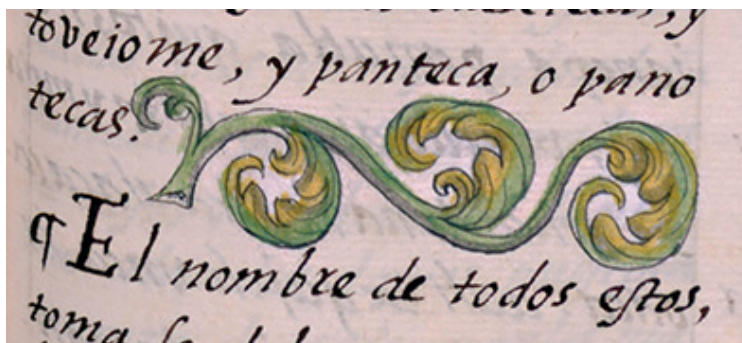 toveiome, y panteca, o pano
tecas.
¶ El nombre de todos estos,